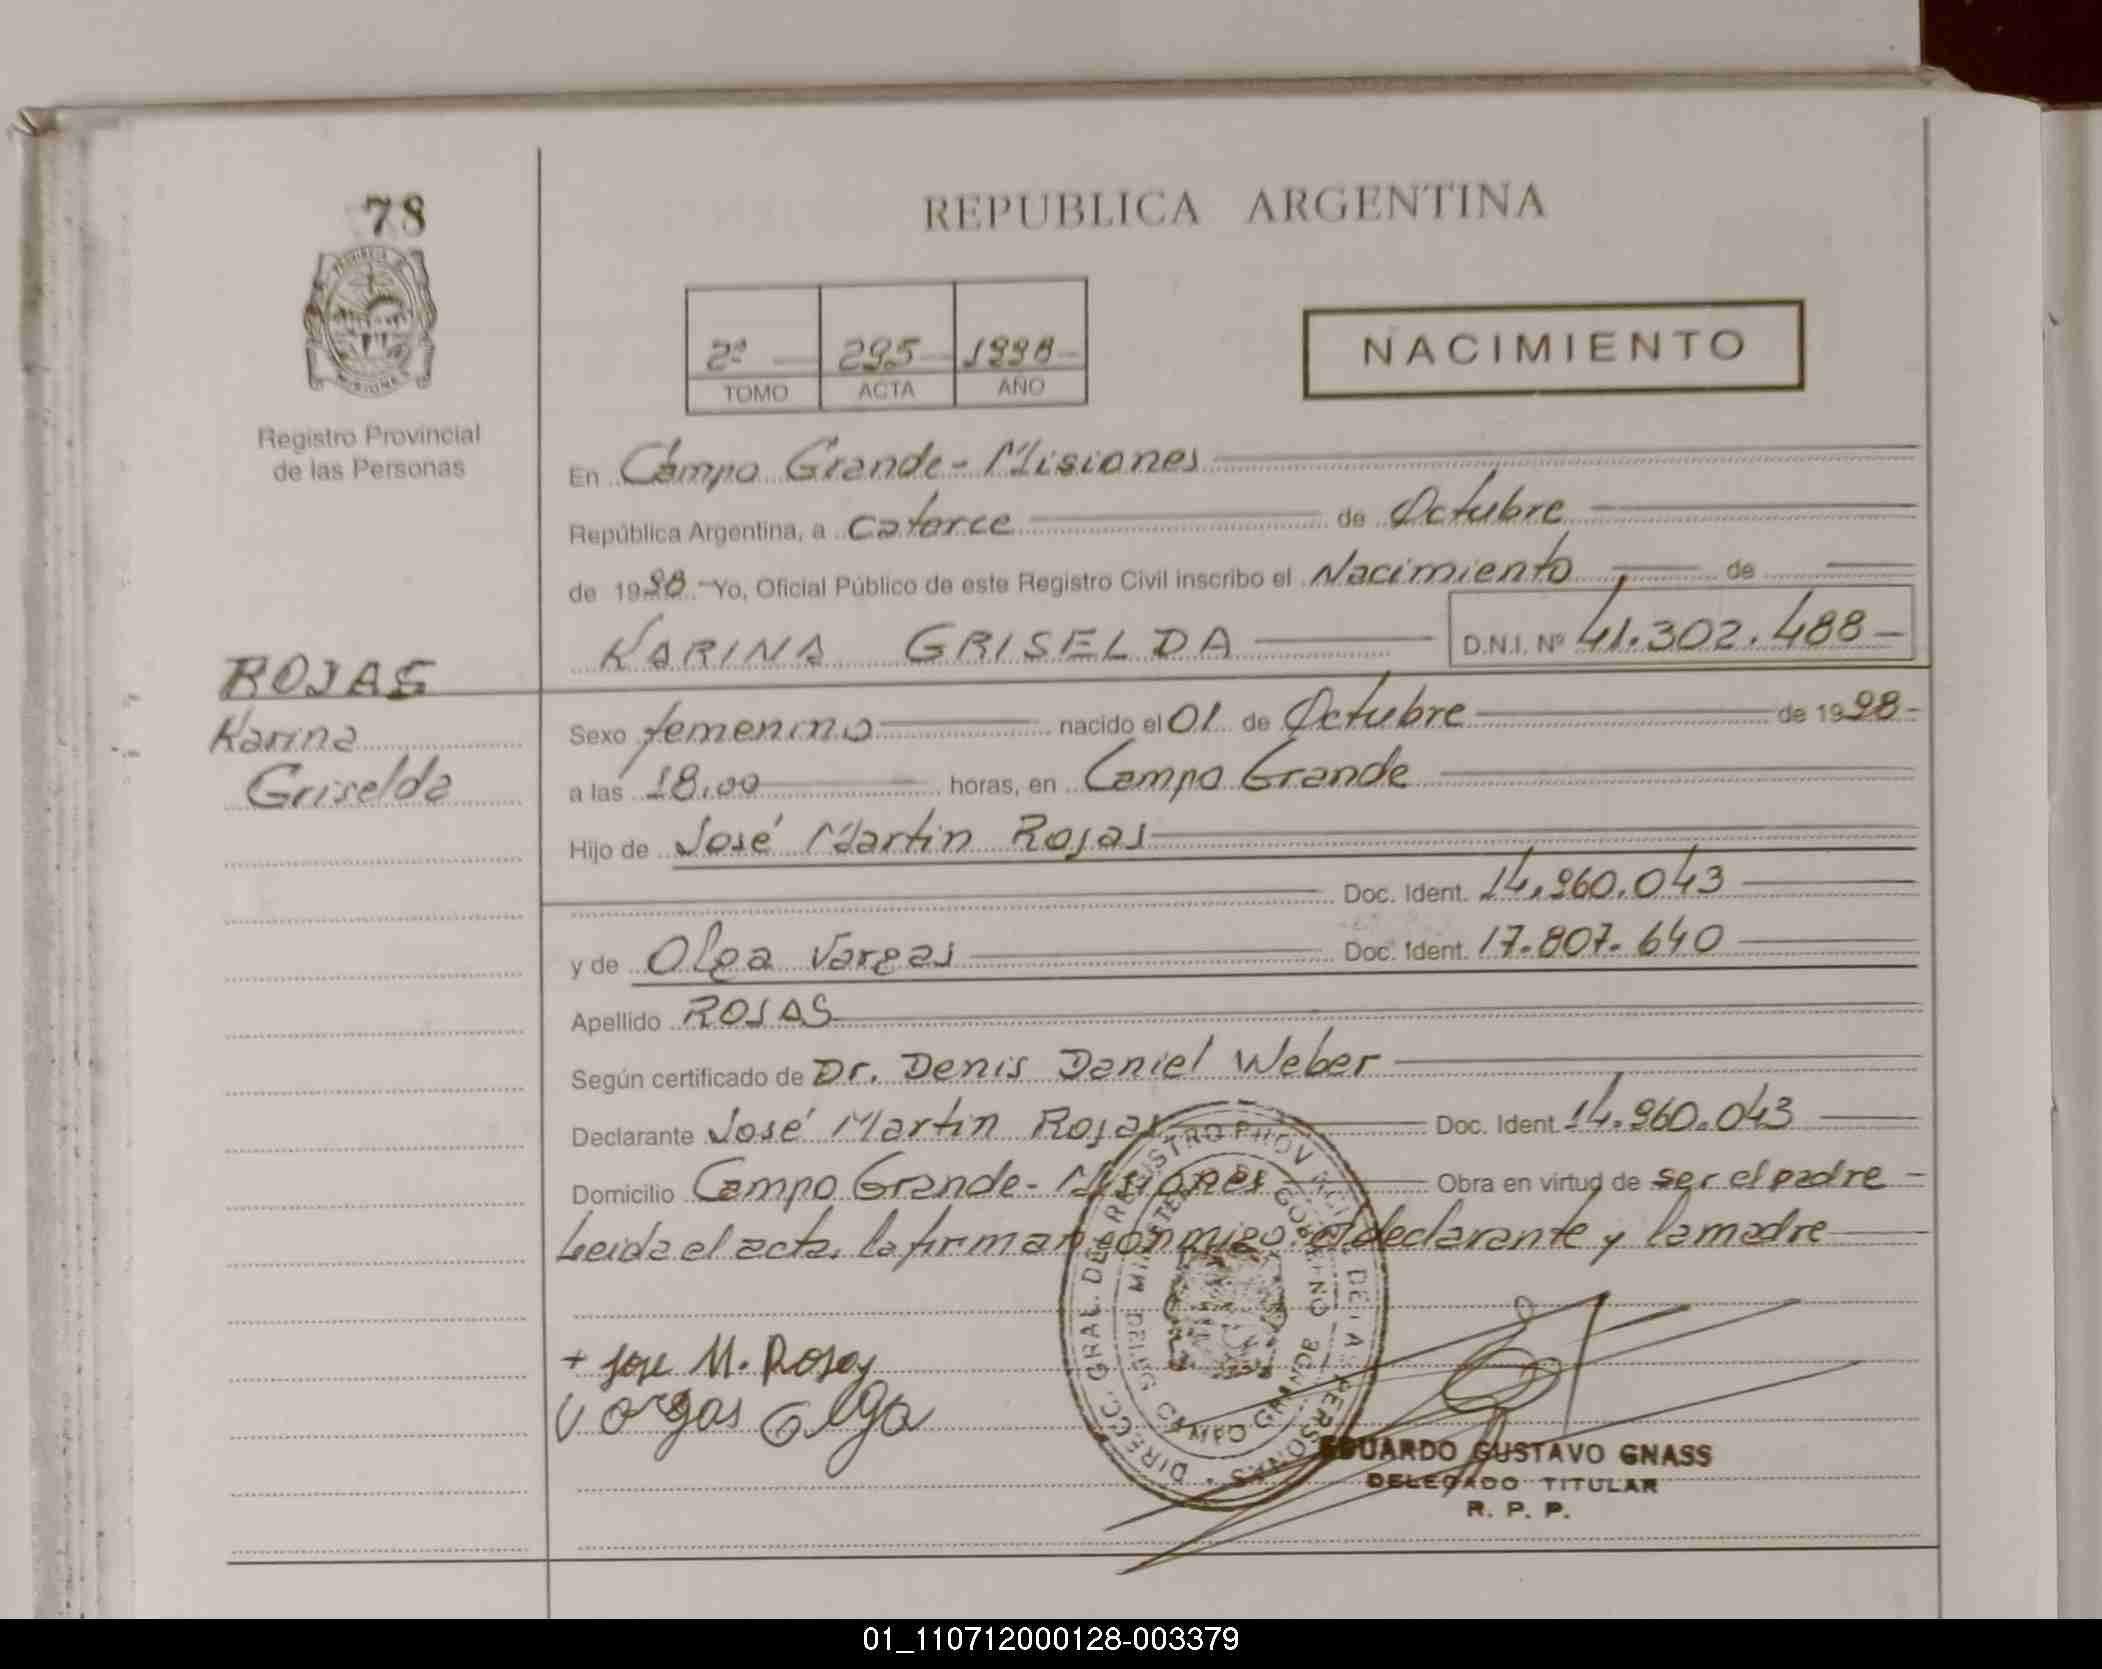 78
REPUBLICA ARGENTINA
PROVINCIA DE MISIONES
Registro Provincial
de las Personas
2º 295 1998
TOMO ACTA AÑO
NACIMIENTO
En Campo Grande - Misiones
República Argentina, a catorce de Octubre
de 1998 - Yo, Oficial Público de este Registro Civil inscribo el Nacimiento de
KARINA GRISELDA D.N.I. Nº 41.302.488
ROJAS
Karina
Griselda
Sexo femenino nacido el 01 de Octubre de 1998
a las 18.00 horas, en Campo Grande
Hijo de José Martin Rojas
Doc. Ident. 14.960.043
y de Olga Vargas Doc. Ident. 17.807.640
Apellido ROJAS
Según certificado de Dr. Denis Daniel Weber
Declarante José Martin Rojas Doc. Ident. 14.960.043
Domicilio Campo Grande - Misiones Obra en virtud de ser el padre
Leida el acta, la firman conmigo el declarante y la madre
+ Jose M. Rojas
Vargas Olga
DIRECC. GRAL. DEL REGISTRO PROVINCIAL DE LAS PERSONAS
MINISTERIO DE GOBIERNO
CAMPO GRANDE
EDUARDO GUSTAVO GNASS
DELEGADO TITULAR
R. P. P.
01_110712000128-003379